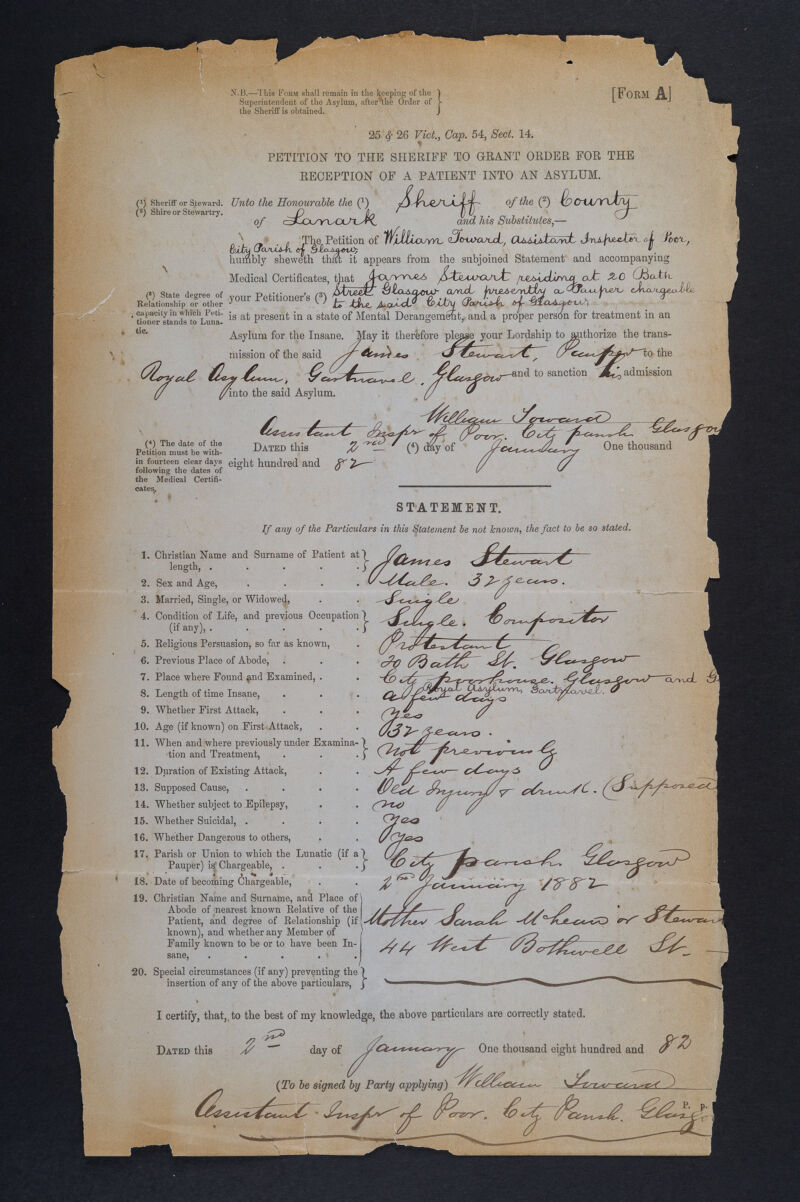 N.B.—This Form shall remain in the keeping of the
Superintendent of the Asylum, after the Order of
the Sheriff is obtained.
[Form A]
25 & 26 Vict., Cap. 54, Sect. 14.
PETITION TO THE SHERIFF TO GRANT ORDER FOR THE
RECEPTION OF A PATIENT INTO AN ASYLUM.
(1) Sheriff or Steward.
(2) Shire or Stewartry.
Unto the Honourable the (1) Sheriff of the (2) County
of Lanark and his Substitutes,—
The Petition of William Toward, Assistant Inspector of Poor,
City Parish of Glasgow;
humbly sheweth that it appears from the subjoined Statement and accompanying
Medical Certificates, that James Stewart residing at 20 Bath
Street Glasgow and presently a Pauper chargeable
(3) State degree of
Relationship or other
capacity in which Peti-
tioner stands to Luna-
tic.
your Petitioner's (3) to the said City Parish of Glasgow;
is at present in a state of Mental Derangement, and a proper person for treatment in an
Asylum for the Insane. May it therefore please your Lordship to authorize the trans-
mission of the said James Stewart, Pauper to the
Royal Asylum, Gartnavel, Glasgow and to sanction his admission
into the said Asylum.
William Toward
Assistant Inspr of Poor. City parish Glasgow
(4) The date of the
Petition must be with-
in fourteen clear days
following the dates of
the Medical Certifi-
cates.
Dated this 2nd (4) day of January One thousand
eight hundred and 82
STATEMENT.
If any of the Particulars in this Statement be not known, the fact to be so stated.
1. Christian Name and Surname of Patient at
length, . . . . . . James Stewart
2. Sex and Age, . . . . Male. 32 years.
3. Married, Single, or Widowed, . . Single
4. Condition of Life, and previous Occupation
(if any), . . . . . . Single. Compositor
5. Religious Persuasion, so far as known, . Protestant
6. Previous Place of Abode, . . . 20 Bath St. Glasgow
7. Place where Found and Examined, . . City poorhouse. Glasgow and G
Royal Asylum, Gartnavel.
8. Length of time Insane, . . . a few days
9. Whether First Attack, . . . Yes
10. Age (if known) on First Attack, . . 32 years.
11. When and where previously under Examina-
tion and Treatment, . . . . Not previously
12. Duration of Existing Attack, . . A few days
13. Supposed Cause, . . . . Old Injury & drink. (Supposed
14. Whether subject to Epilepsy, . . no
15. Whether Suicidal, . . . . Yes
16. Whether Dangerous to others, . . Yes
17. Parish or Union to which the Lunatic (if a
Pauper) is Chargeable, . . . . City parish Glasgow
18. Date of becoming Chargeable, . . 2nd January 1882
19. Christian Name and Surname, and Place of
Abode of nearest known Relative of the
Patient, and degree of Relationship (if
known), and whether any Member of
Family known to be or to have been In-
sane, . . . . . .
Mother Sarah or Stewar
44 West Bothwell St.
20. Special circumstances (if any) preventing the
insertion of any of the above particulars,
I certify, that, to the best of my knowledge, the above particulars are correctly stated.
Dated this 2nd day of January One thousand eight hundred and 82
(To be signed by Party applying) William Toward
P. p.
Assistant Inspr of Poor. City Parish. Glasgo